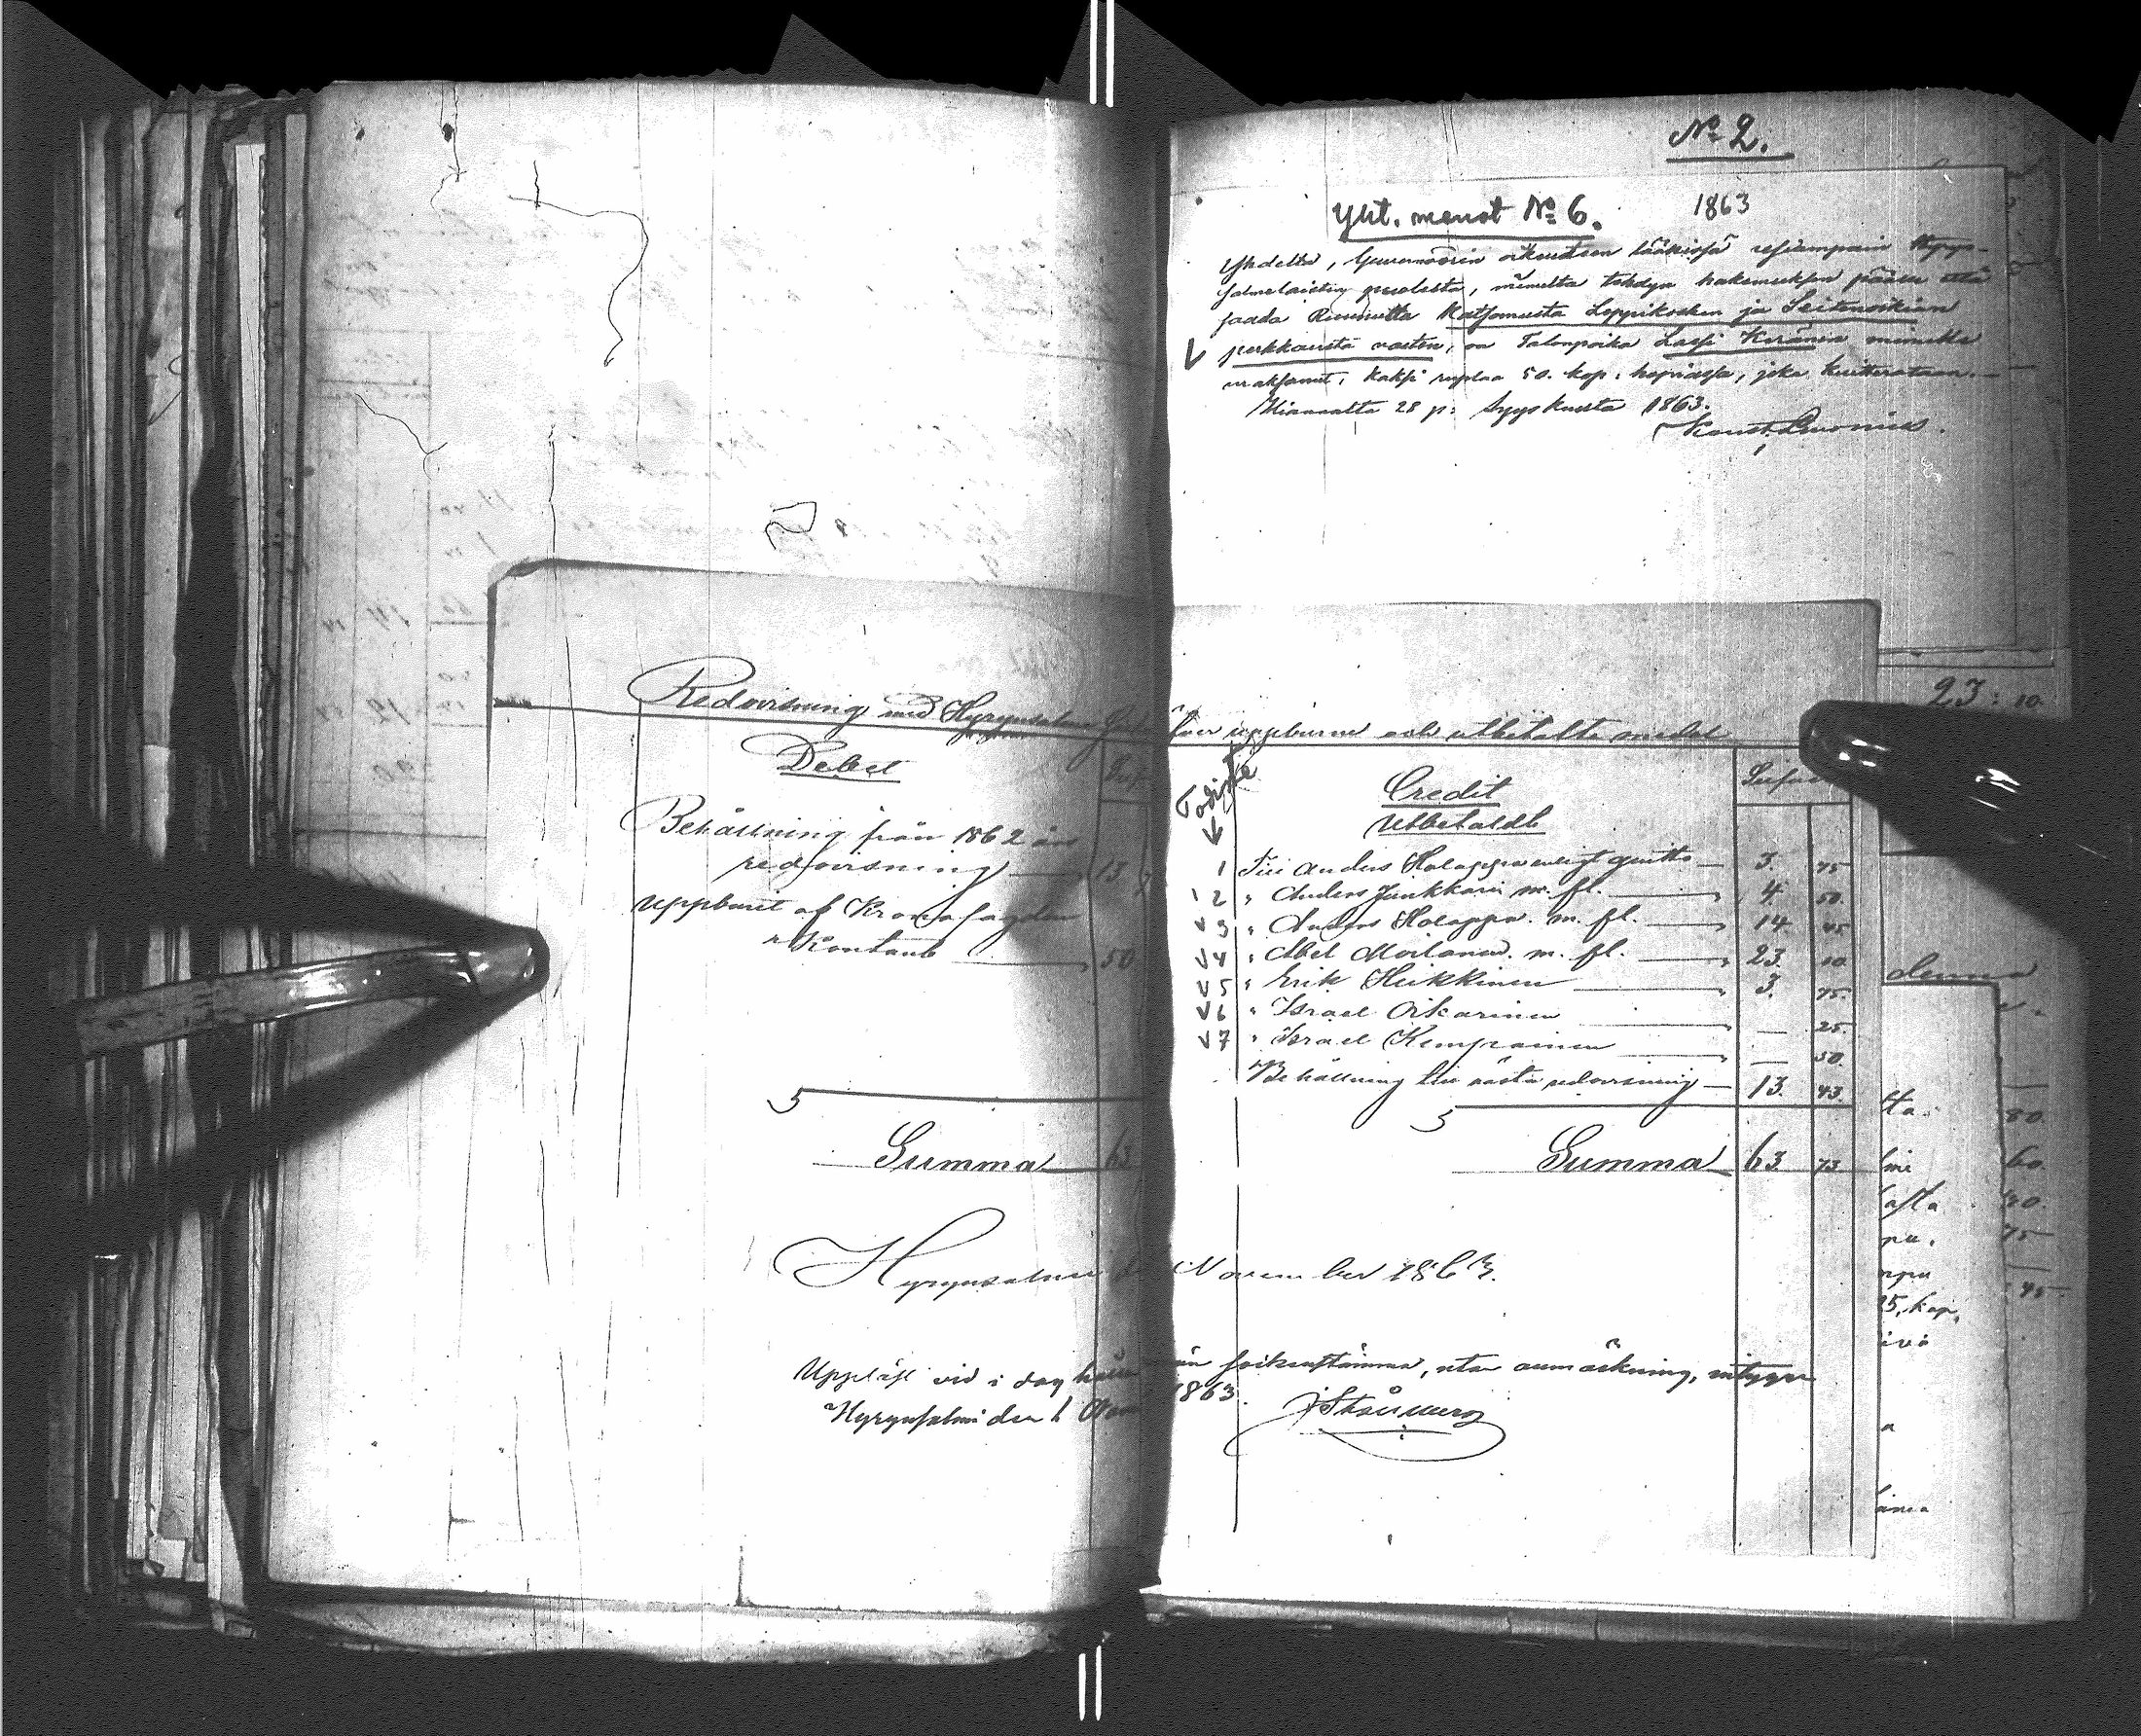 No 2.
Yht. menot No 6. 1863
Yhdeltä, Guvernöörin oikeuteen
puolesta, minulta tehdyn hakemuksen päälle että
saada Ruunulta Katsomusta Leppikosken ja Seitenoikian
perkkausta vasten, on Talonpoika Lassi Keränen minulle
maksanut, kaksi ruplaa 50. kop: hopiassa, joka kvitterataan.
Kiannalta 28 p: Syyskuusta 1863.
Redovisning med Hyrynsalmi
öfver uppburne och utbetalte medel
Debet
Behållning från 1862 års
redovisning 13
Uppburit af Kronofogden
Kontant 50
Summa 63
Todiste
Credit
Utbetaldt
1 Till Anders Holappa enligt quitto 3. 75
2 " Anders Junkkari m. fl. 4. 50.
3 " Anders Holappa. m. fl. 14. 45
4 " Abel Moilanen. m. fl. 23. 10
5 " Erik Heikkinen 3. 75.
6 " Israel Oikarinen — 25.
7 " Israel Kemppainen — 50.
Behållning till nästa redovisning 13. 43.
Summa 63. 73
Hyrynsalmi November 1863.
Uppläst vid i dag sockenstämma, utan anmärkning, intygar
Hyrynsalmi den 1 1863.
23: 10
sta. 80.
lmi 60.
asta 40.
pu. 75
25. kop. 45